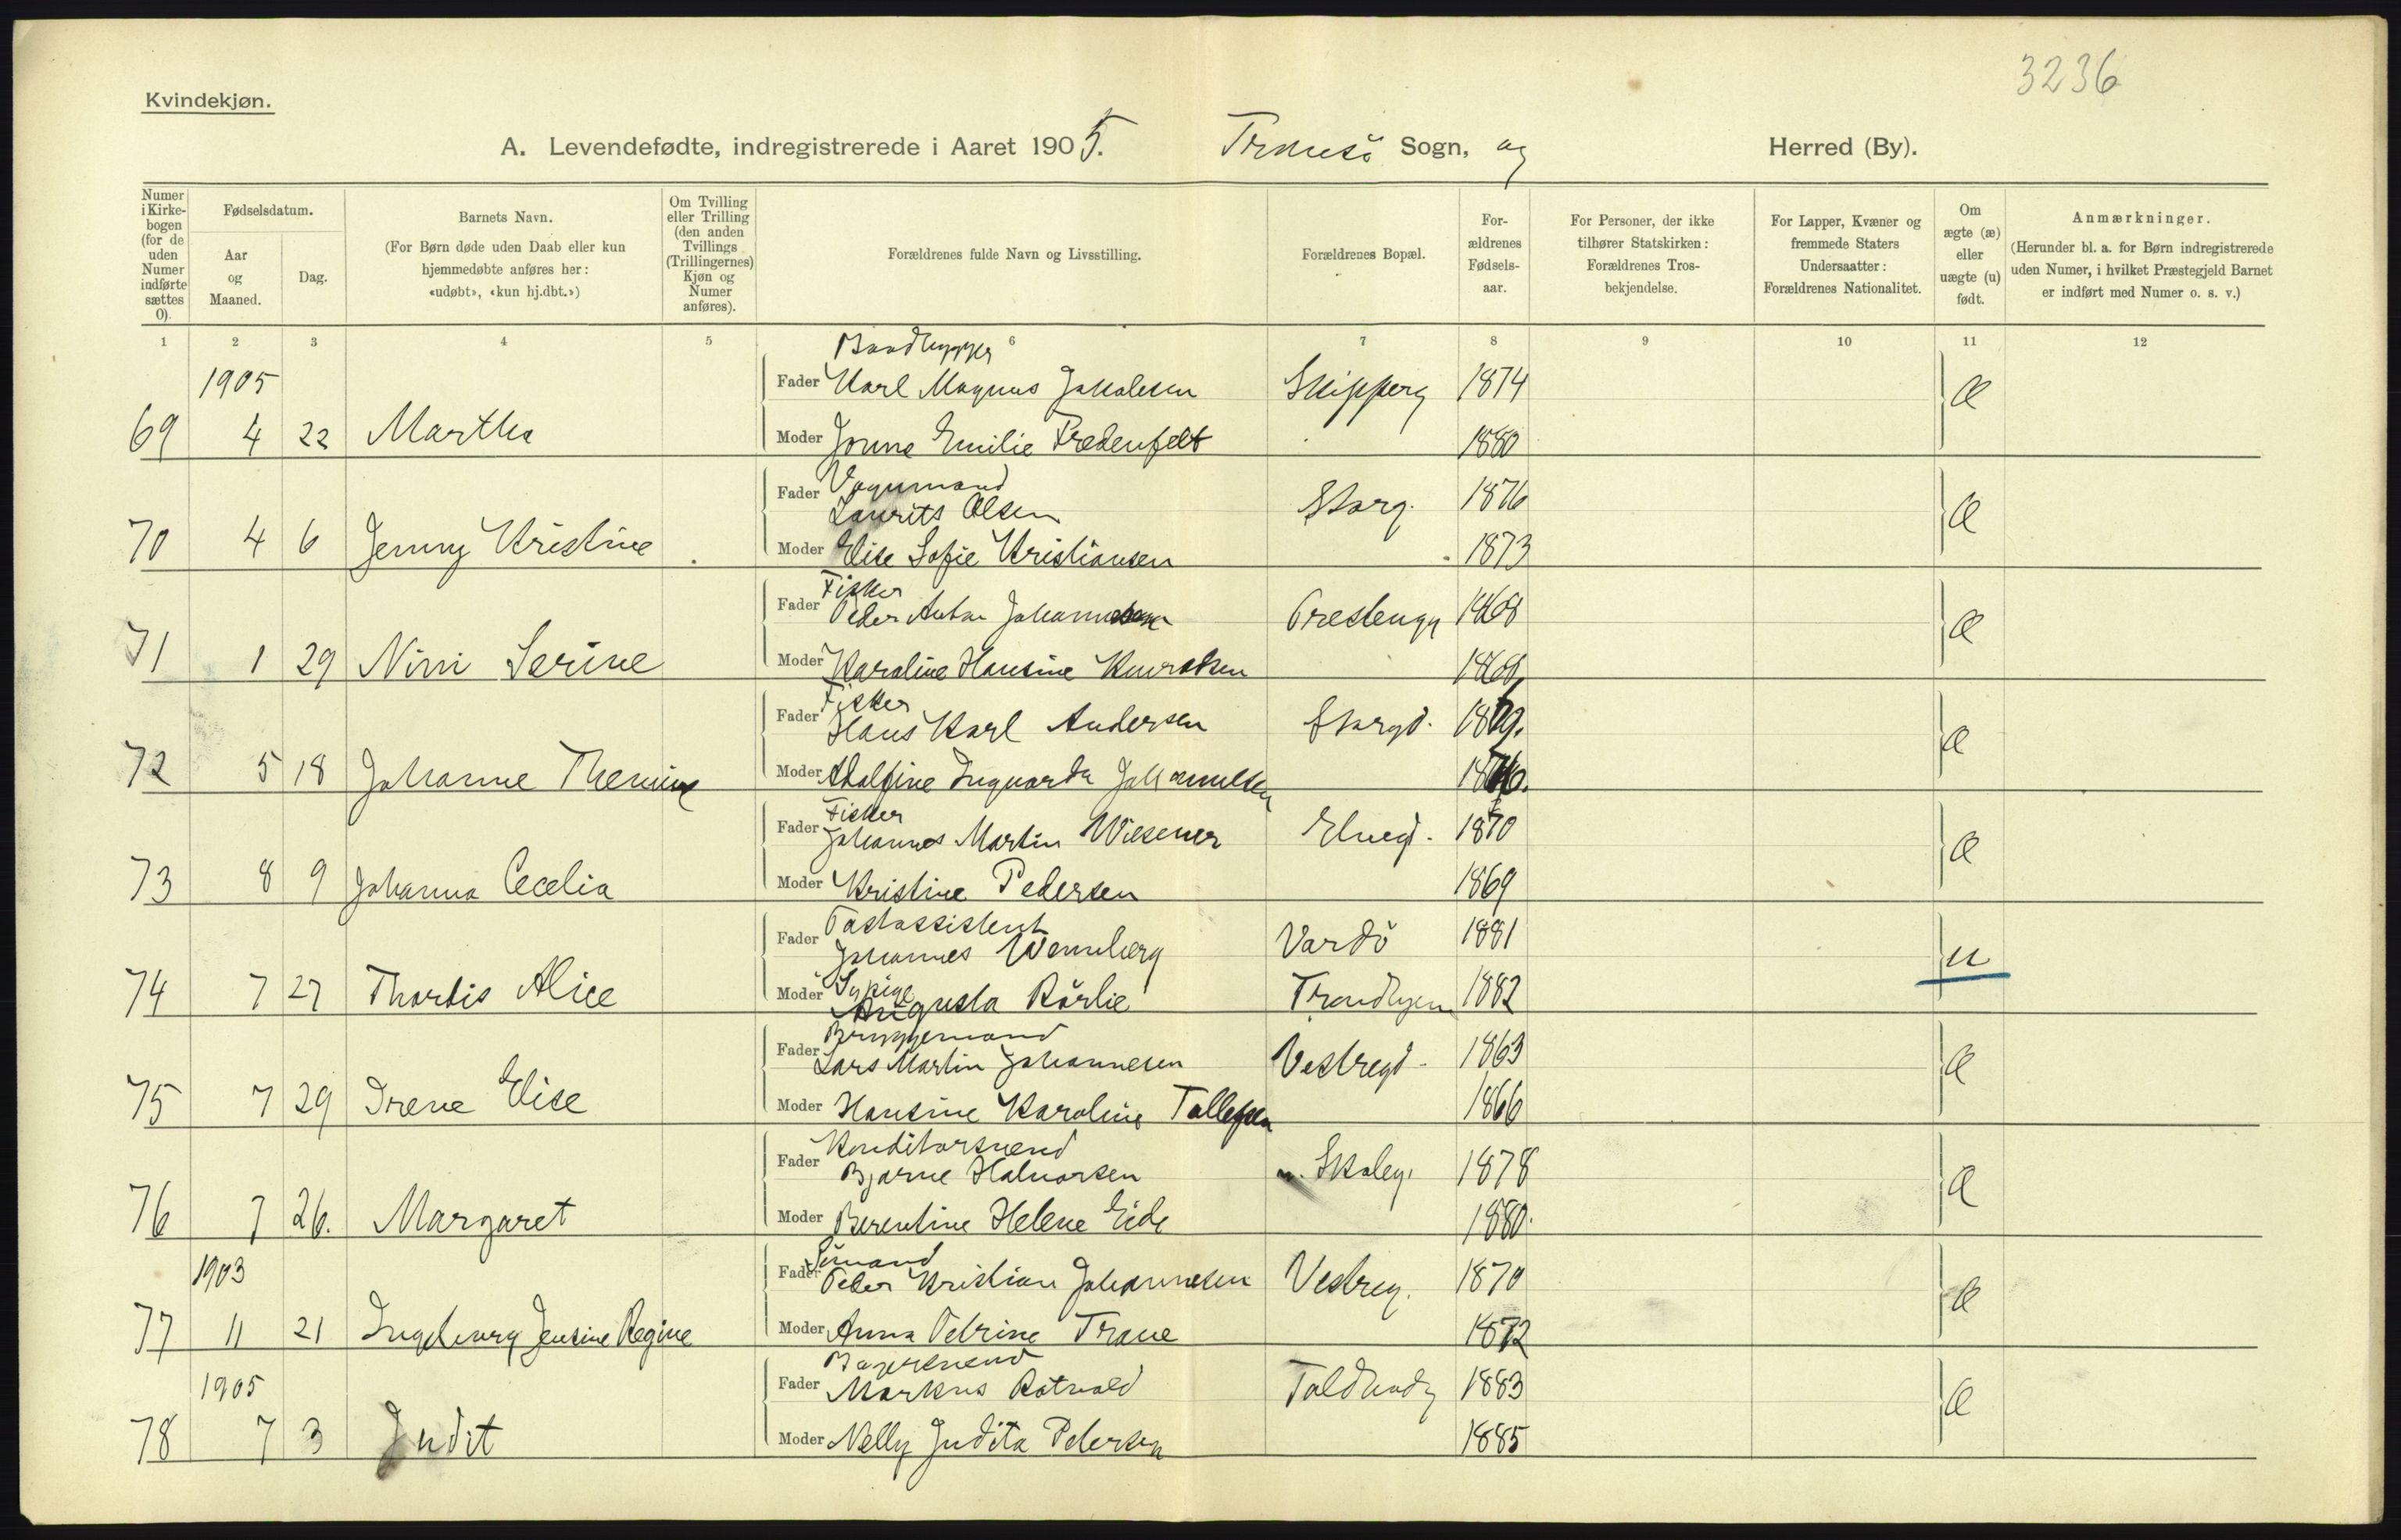 3236
Kvindekjøn.
A. Levendefødte, indregistrerede i Aaret 1905. Tromsö Sogn, og Herred (By).
Numer i Kirkebogen (for de uden Numer indførte sættes 0).
Fødselsdatum.
Aar og Maaned.
Dag.
Barnets Navn.
(For Børn døde uden Daab eller kun hjemmedøbte anføres her: «udøbt», «kun hj.dbt.»)
Om Tvilling eller Trilling (den anden Tvillings (Trillingernes) Kjøn og Numer anføres).
Forældrenes fulde Navn og Livsstilling.
Forældrenes Bopæl.
Forældrenes Fødselsaar.
For Personer, der ikke tilhører Statskirken: Forældrenes Trosbekjendelse.
For Lapper, Kvæner og fremmede Staters Undersaatter: Forældrenes Nationalitet.
Om ægte (æ) eller uægte (u) født.
Anmærkninger.
(Herunder bl. a. for Børn indregistrerede uden Numer, i hvilket Præstegjeld Barnet er indført med Numer o. s. v.)
1 2 3 4 5 6 7 8 9 10 11 12
Baadbygger
1905 Fader Karl Magnus Jakobsen Skipperg 1874 Æ
69 4 22 Martha Moder Emilie 1880
Vognmand
Fader Laurits Olsen Storg. 1876 Æ
70 4 6 Jenny Kristine Moder Elise Sofie Kristiansen 1873
Fisker
Fader Peder Anton Prestengg 1868 Æ
71 1 29 Nini Serine Moder Karoline Hansine 1868
Fisker
Fader Hans Karl Andersen Storgd. Æ
72 5 18 Johanne Moder Adolfine Ingvarda
Fisker
Fader Johannes Martin Wiesener Elvegd. 1870 Æ
73 8 9 Johanna Cecelia Moder Kristine Pedersen 1869
Postassistent
Fader Johannes Wennberg Vardö 1881 u
Sypige
74 7 27 Thordis Alice Moder Augusta Rörlie Trondhjem 1882
Bryggemand
Fader Lars Martin Johannesen Vestregd. 1863 Æ
75 7 29 Irene Elise Moder Hansine Karoline Tollefsen 1866
Konditorsvend
Fader Bjarne Halvorsen n. Skoleg. 1878 Æ
76 7 26. Margaret Moder Berentine Helene Eide 1880.
Sömand
1903 Fader Peder Kristian Johannesen Vestreg. 1870 Æ
77 11 21 Ingeborg Jensine Regine Moder Anna Petrine Trane 1872
Bagersvend
1905 Fader Markus Rotvold Toldbodg 1883 Æ
78 7 3 Judit Moder Nelly Judita Petersen 1885